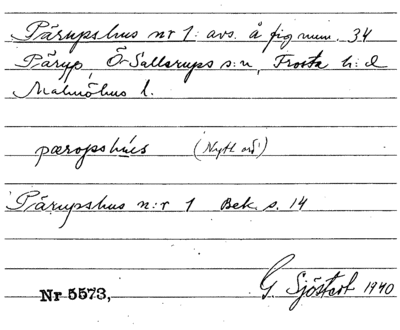 Pärupshus nr 1: avs. å fig num. 34
Pärup, Ö. Sallerups s:n, Frosta h:d
Malmöhus l.
pæropshús (Nytt ord)
Pärupshus n:r 1 Bek. s. 14
G. Sjöstedt 1940
Nr 5573,